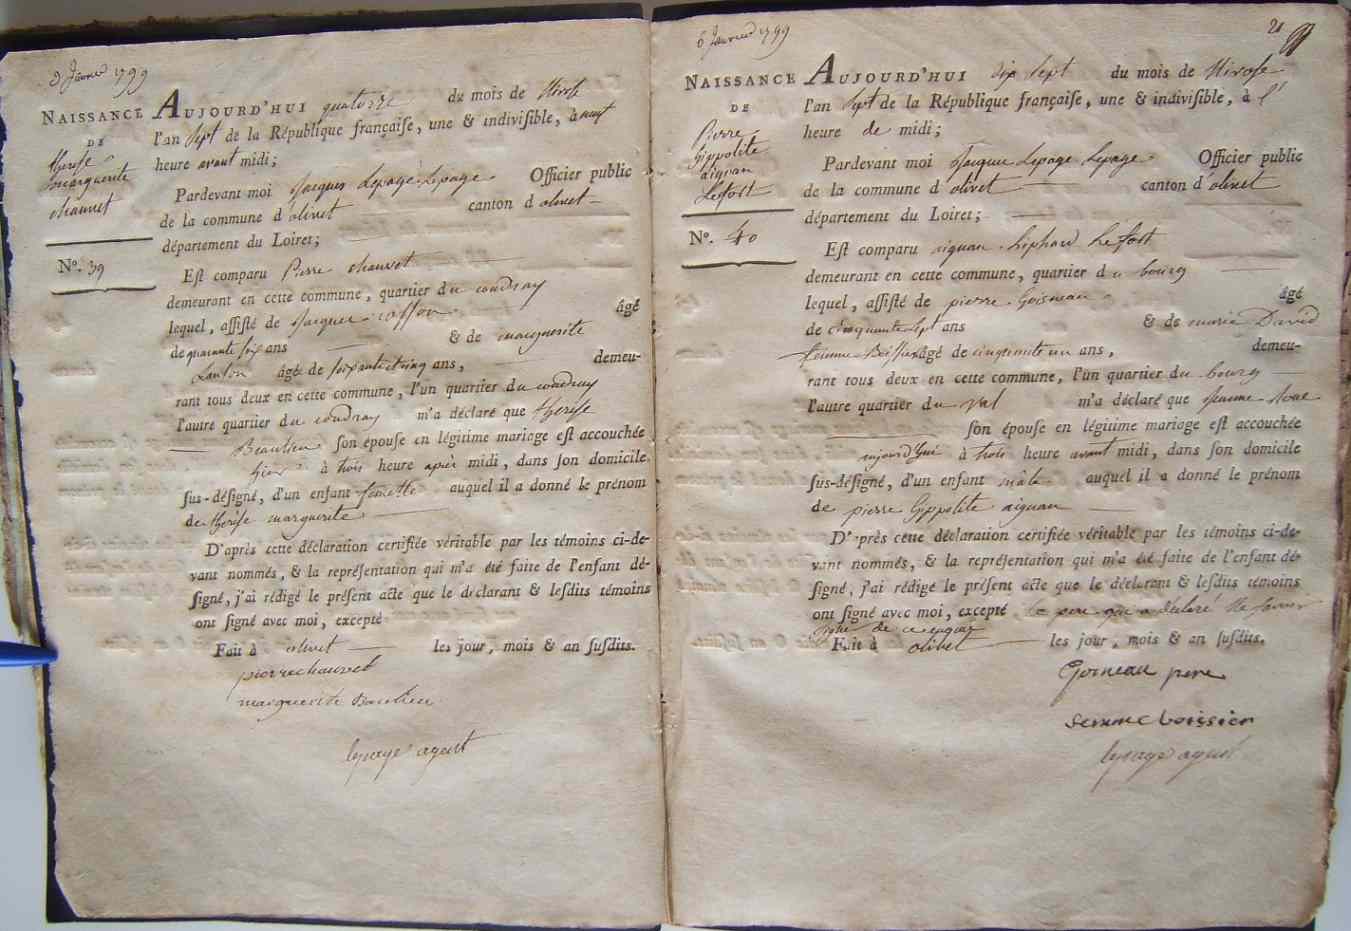 3 Janvier 1799
NAISSANCE
DE
therese
marguerite
chauvet
N°. 39
AUJOURD'HUI quatorze du mois de Nivose
l'an sept de la République françaiſe, une & indiviſible, à neuf
heure avant midi;
Pardevant moi Jacques Lepage Lepage Officier public
de la commune d'olivet canton d olivet
département du Loiret;
Eſt comparu Pierre chauvet
demeurant en cette commune, quartier du coudray
lequel, aſſiſté de Jacques âgé
de quarante ſix ans & de marguerite
âgé de ſoixante cinq ans, demeu-
rant tous deux en cette commune, l'un quartier du coudray
l'autre quartier du coudray m'a déclaré que thereſe
Beaulieu ſon épouſe en légitime mariage eſt accouchée
hier à trois heure après midi, dans ſon domicile
ſus-déſigné, d'un enfant femelle auquel il a donné le prénom
de thereſe marguerite
D'après cette déclaration certifiée véritable par les témoins ci-de-
vant nommés, & la repréſentation qui m'a été faite de l'enfant dé-
ſigné, j'ai rédigé le préſent acte que le déclarant & leſdits témoins
ont ſigné avec moi, excepté
Fait à olivet les jour, mois & an ſuſdits.
pierre chauvet
marguerite
lepage agent
6 Janvier 1799
21
NAISSANCE
DE
Pierre
hippolite
aignan
Lefort
N°. 40
AUJOURD'HUI dix sept du mois de Nivose
l'an sept de la République françaiſe, une & indiviſible, à
heure de midi;
Pardevant moi Jacques Lepage Lepage Officier public
de la commune d'olivet canton d'olivet
département du Loiret;
Eſt comparu aignan Lefort
demeurant en cette commune, quartier du bourg
lequel, aſſiſté de pierre âgé
de cinquante sept ans & de marie David
femme âgé de cinquante un ans, demeu-
rant tous deux en cette commune, l'un quartier du bourg
l'autre quartier du val m'a déclaré que
ſon épouſe en légitime mariage eſt accouchée
aujourd'hui à trois heure avant midi, dans ſon domicile
ſus-déſigné, d'un enfant mâle auquel il a donné le prénom
de pierre hippolite aignan
D'après cette déclaration certifiée véritable par les témoins ci-de-
vant nommés, & la repréſentation qui m'a été faite de l'enfant dé-
ſigné, j'ai rédigé le préſent acte que le déclarant & leſdits témoins
ont ſigné avec moi, excepté le pere qui a déclaré Ne ſavoir
de ce enquis
Fait à olivet les jour, mois & an ſuſdits.
pere
femme boissier
lepage agent